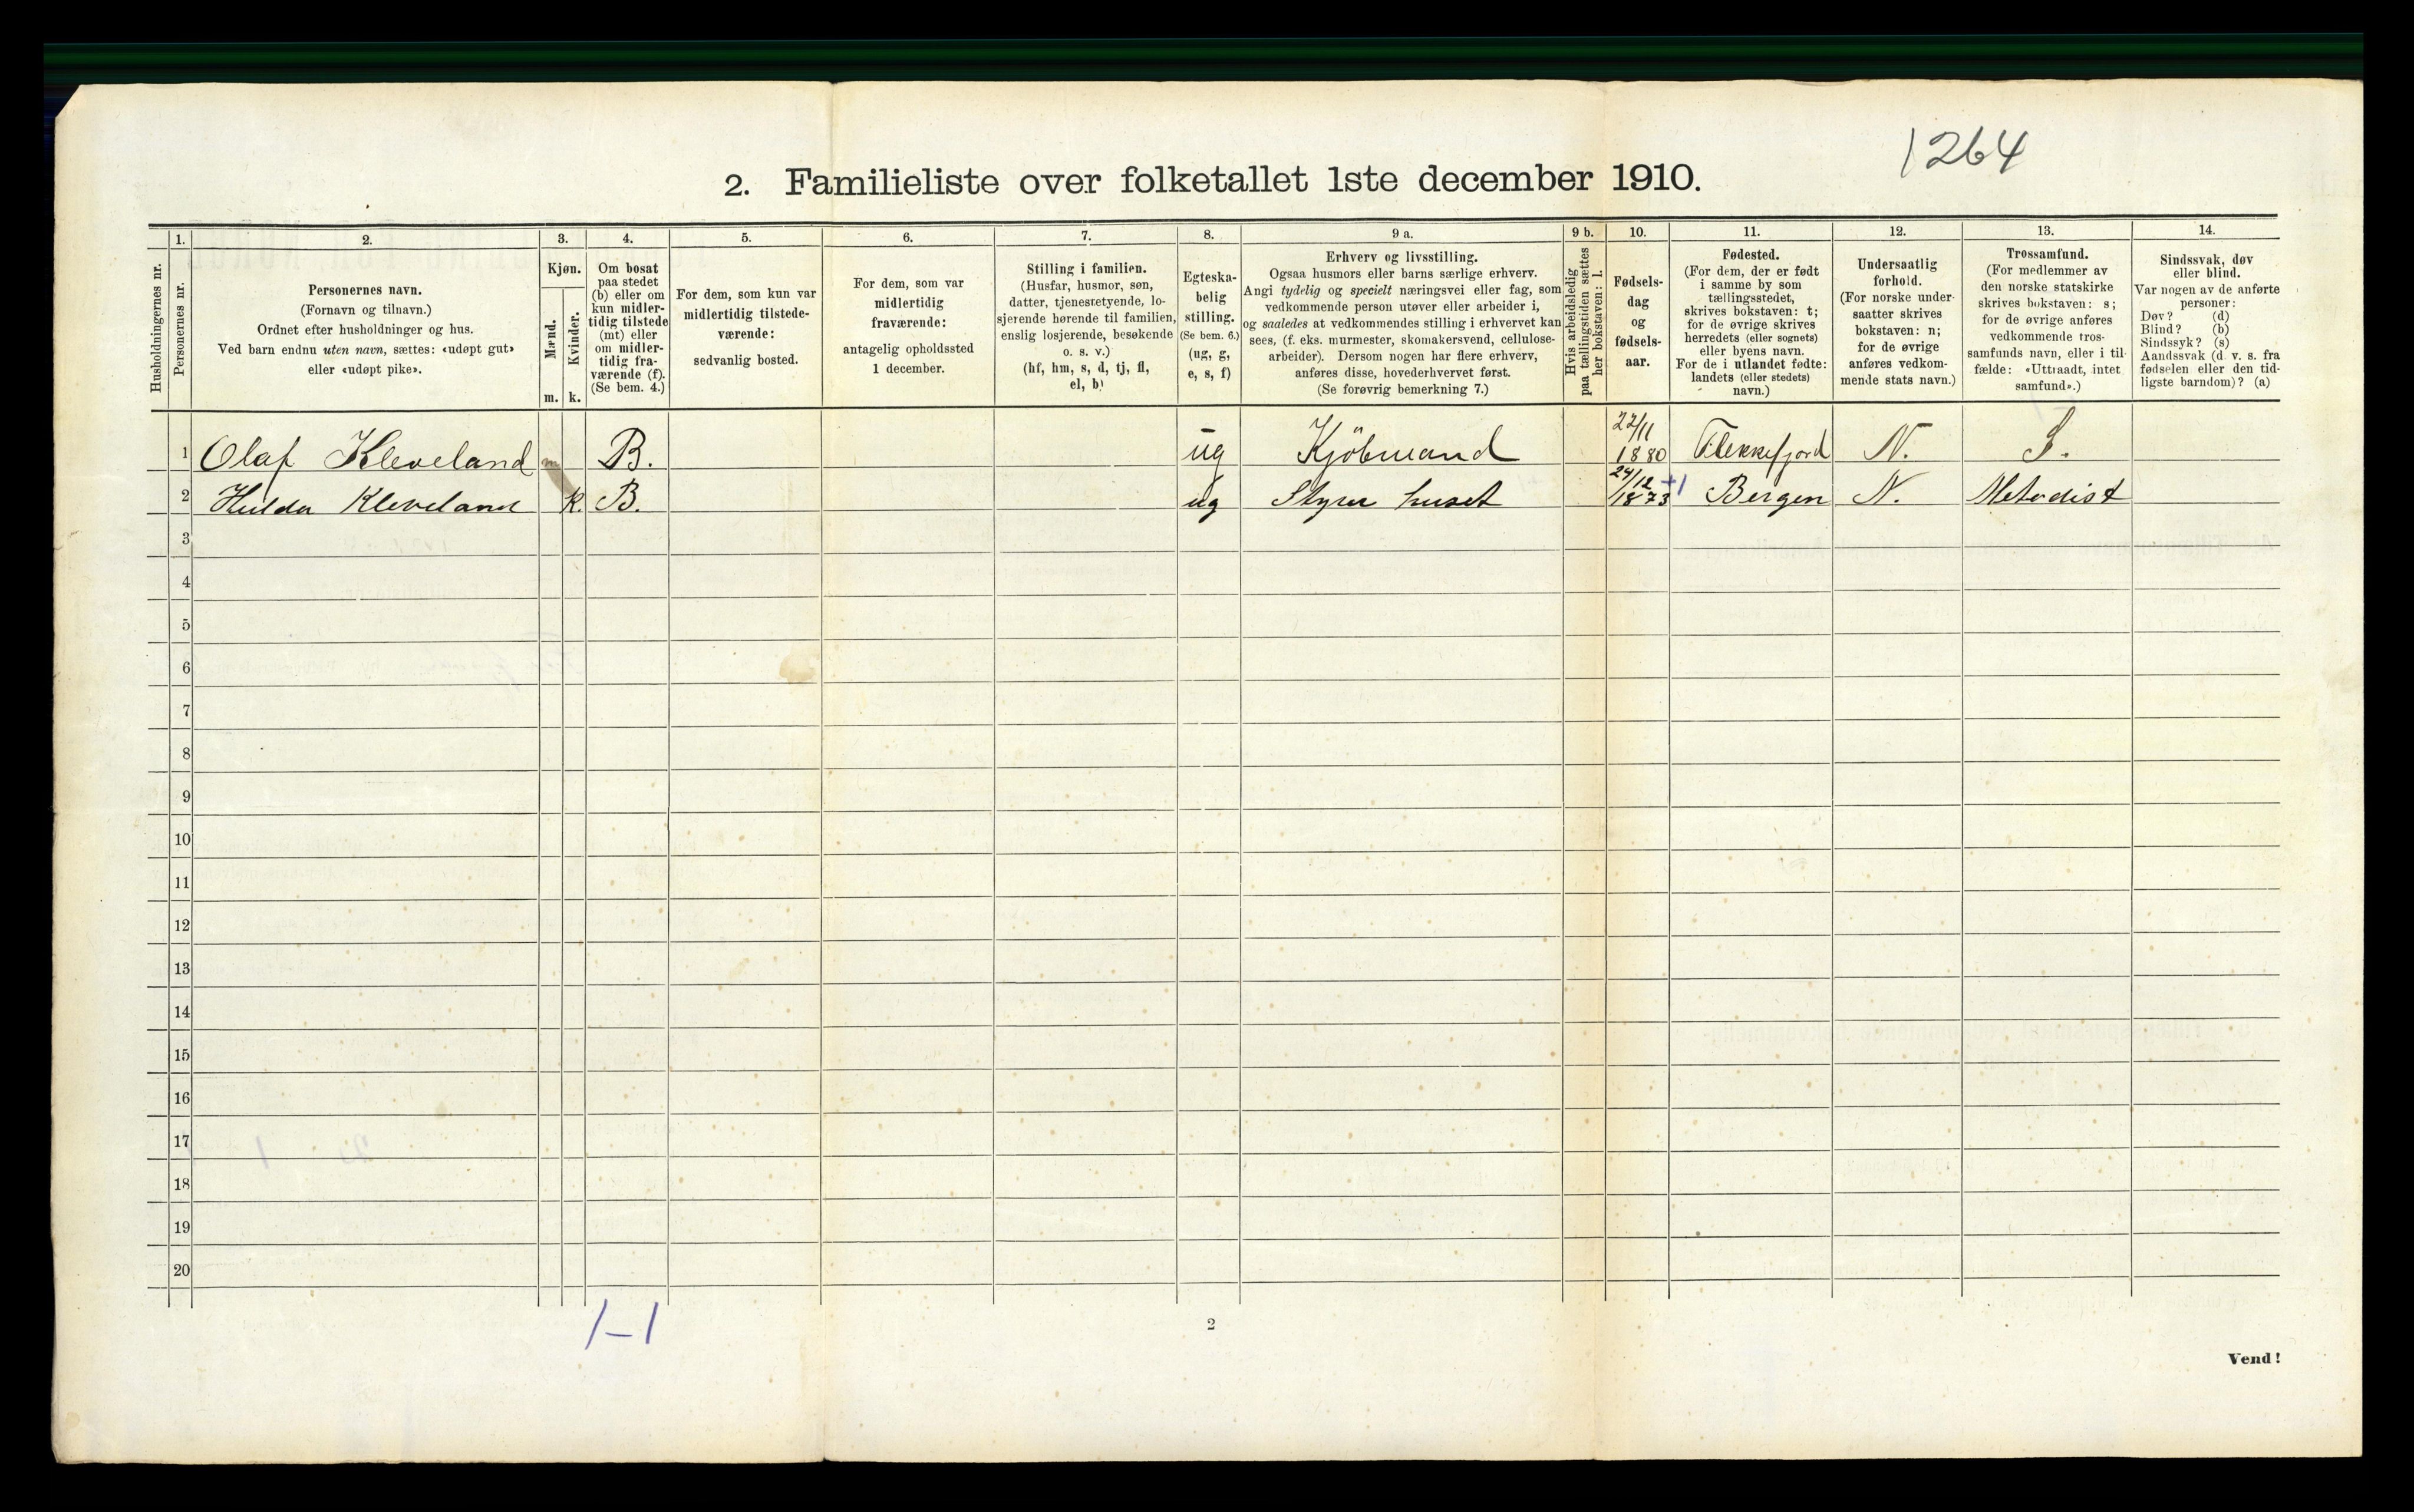 1264
2. Familieliste over folketallet 1ste december 1910.
Husholdningernes nr.
1.
Personernes nr.
2.
Personernes navn.
(Fornavn og tilnavn.)
Ordnet efter husholdninger og hus.
Ved barn endnu uten navn, sættes: «udøpt gut»
eller «udøpt pike».
3.
Kjøn.
Mænd.
Kvinder.
m. k.
4.
Om bosat
paa stedet
(b) eller om
kun midler-
tidig tilstede
(mt) eller
om midler-
tidig fra-
værende (f).
(Se bem. 4.)
5.
For dem, som kun var
midlertidig tilstede-
værende:
sedvanlig bosted.
6.
For dem, som var
midlertidig
fraværende:
antagelig opholdssted
1 december.
7.
Stilling i familien.
(Husfar, husmor, søn,
datter, tjenestetyende, lo-
sjerende hørende til familien,
enslig losjerende, besøkende
o. s. v.)
(hf, hm, s, d, tj, fl,
el, b)
8.
Egteska-
belig
stilling.
(Se bem. 6.)
(ug, g,
e, s, f)
9 a.
Erhverv og livsstilling.
Ogsaa husmors eller barns særlige erhverv.
Angi tydelig og specielt næringsvei eller fag, som
vedkommende person utøver eller arbeider i,
og saaledes at vedkommendes stilling i erhvervet kan
sees, (f. eks. murmester, skomakersvend, cellulose-
arbeider). Dersom nogen har flere erhverv,
anføres disse, hovederhvervet først.
(Se forøvrig bemerkning 7.)
9 b.
Hvis arbeidsledig
paa tællingstiden sættes
her bokstaven: l.
10.
Fødsels-
dag
og
fødsels-
aar.
11.
Fødested.
(For dem, der er født
i samme by som
tællingsstedet,
skrives bokstaven: t;
for de øvrige skrives
herredets (eller sognets)
eller byens navn.
For de i utlandet fødte:
landets (eller stedets)
navn.)
12.
Undersaatlig
forhold.
(For norske under-
saatter skrives
bokstaven: n;
for de øvrige
anføres vedkom-
mende stats navn.)
13.
Trossamfund.
(For medlemmer av
den norske statskirke
skrives bokstaven: s;
for de øvrige anføres
vedkommende tros-
samfunds navn, eller i til-
fælde: «Uttraadt, intet
samfund».)
14.
Sindssvak, døv
eller blind.
Var nogen av de anførte
personer:
Døv? (d)
Blind? (b)
Sindssyk? (s)
Aandssvak (d. v. s. fra
fødselen eller den tid-
ligste barndom)? (a)
1 Olaf Kleveland m B. ug Kjöbmand 22/11 1880 Flekkefjord N. S.
2 Hulda Kleveland k. B. ug Styrer huset 24/12 1873 +1 Bergen N. Metodist
3
4
5
6
7
8
9
10
11
12
13
14
15
16
17
18
19
20
1-1
2
Vend!